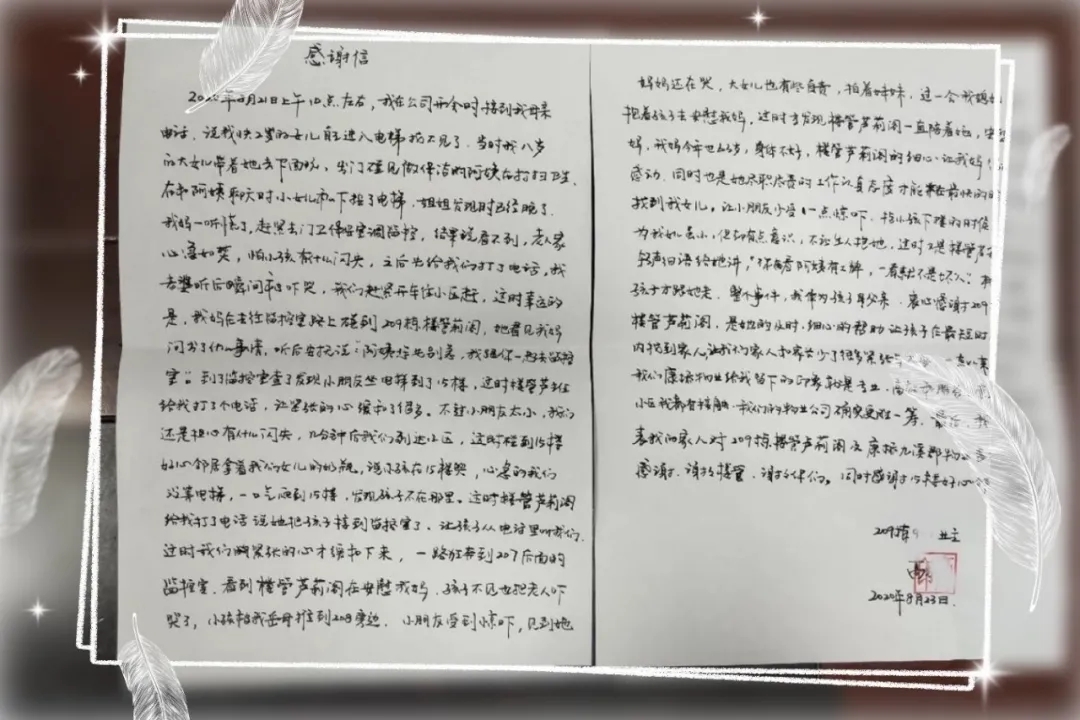 感谢信
2020年8月21日上午10点左右，我在公司开会时接到我母亲
电话，说我快2岁的女儿自己进入电梯找不见了。当时我八岁
的大女儿带着她去下面玩，出门碰见做保洁的阿姨在打扫卫生，
在和阿姨聊天时小女儿按了电梯，姐姐发现时已经晚了。
我妈一听慌了，赶紧去门卫监控室调监控，结果说看不到，老人家
心急如焚，怕小孩有什么闪失，之后先给我们打了电话，我
老婆听后瞬间吓哭，我们赶紧开车往小区赶，这时幸运的
是，我妈在去往监控室路上碰到209栋楼管芦莉阁，她看见我妈
问出了什么事情，听后安抚说：阿姨您先别急，我跟你一起去监控
室；到了监控室查了发现小朋友坐电梯到了15楼，这时楼管芦
给我打了个电话，让紧张的心缓和了很多。不过小朋友太小，我们
还是担心有什么闪失，几分钟后我们到达小区，这时碰到15楼
好心邻居拿着我们女儿的奶瓶，说小孩在15楼哭，心急的我们
没等电梯，一口气爬到15楼，发现孩子不在那里，这时楼管芦莉阁
给我打了电话说她把孩子接到监控室了，让孩子从电话里叫我们，
这时我们紧张的心才缓和下来，一路狂奔到207后面的
监控室，看到楼管芦莉阁在安慰我妈，孩子不见也把老人吓
哭了，小孩被我岳母推到208旁边，小朋友受到惊吓，见到她
妈妈还在哭，大女儿也有些自责，抱着妹妹，这一会我媳妇
抱着孩子去安慰我妈，这时才发现楼管芦莉阁一直陪着她，安
妈，我妈今年也63岁，身体不好，楼管芦莉阁的细心让我妈
感动，同时也是她尽职尽责的工作认真态度才能在最快的时
找到我女儿，让小朋友少受一点惊吓，接小孩下楼的时候
为我女儿虽小，但却有点意识，不让生人抱她，这时又是楼管
轻声细语给她讲，“你看阿姨有工牌，一看就不是坏人”，
孩子才跟她走。整个事件，我作为孩子母父亲，衷心感谢209
楼管芦莉阁，是她的及时、细心的帮助让孩子在最短时
内找到家人，让我们家人和
我们康桥物业给我留下的印象就是专业、
小区我都有接触，我们的物业公司确实更胜一筹，最后，我
表我的家人对209栋楼管芦莉阁及康桥九溪郡物
感谢，谢谢楼管，谢谢你们，同时感谢15楼好心
209栋 业主
2020年8月23日.